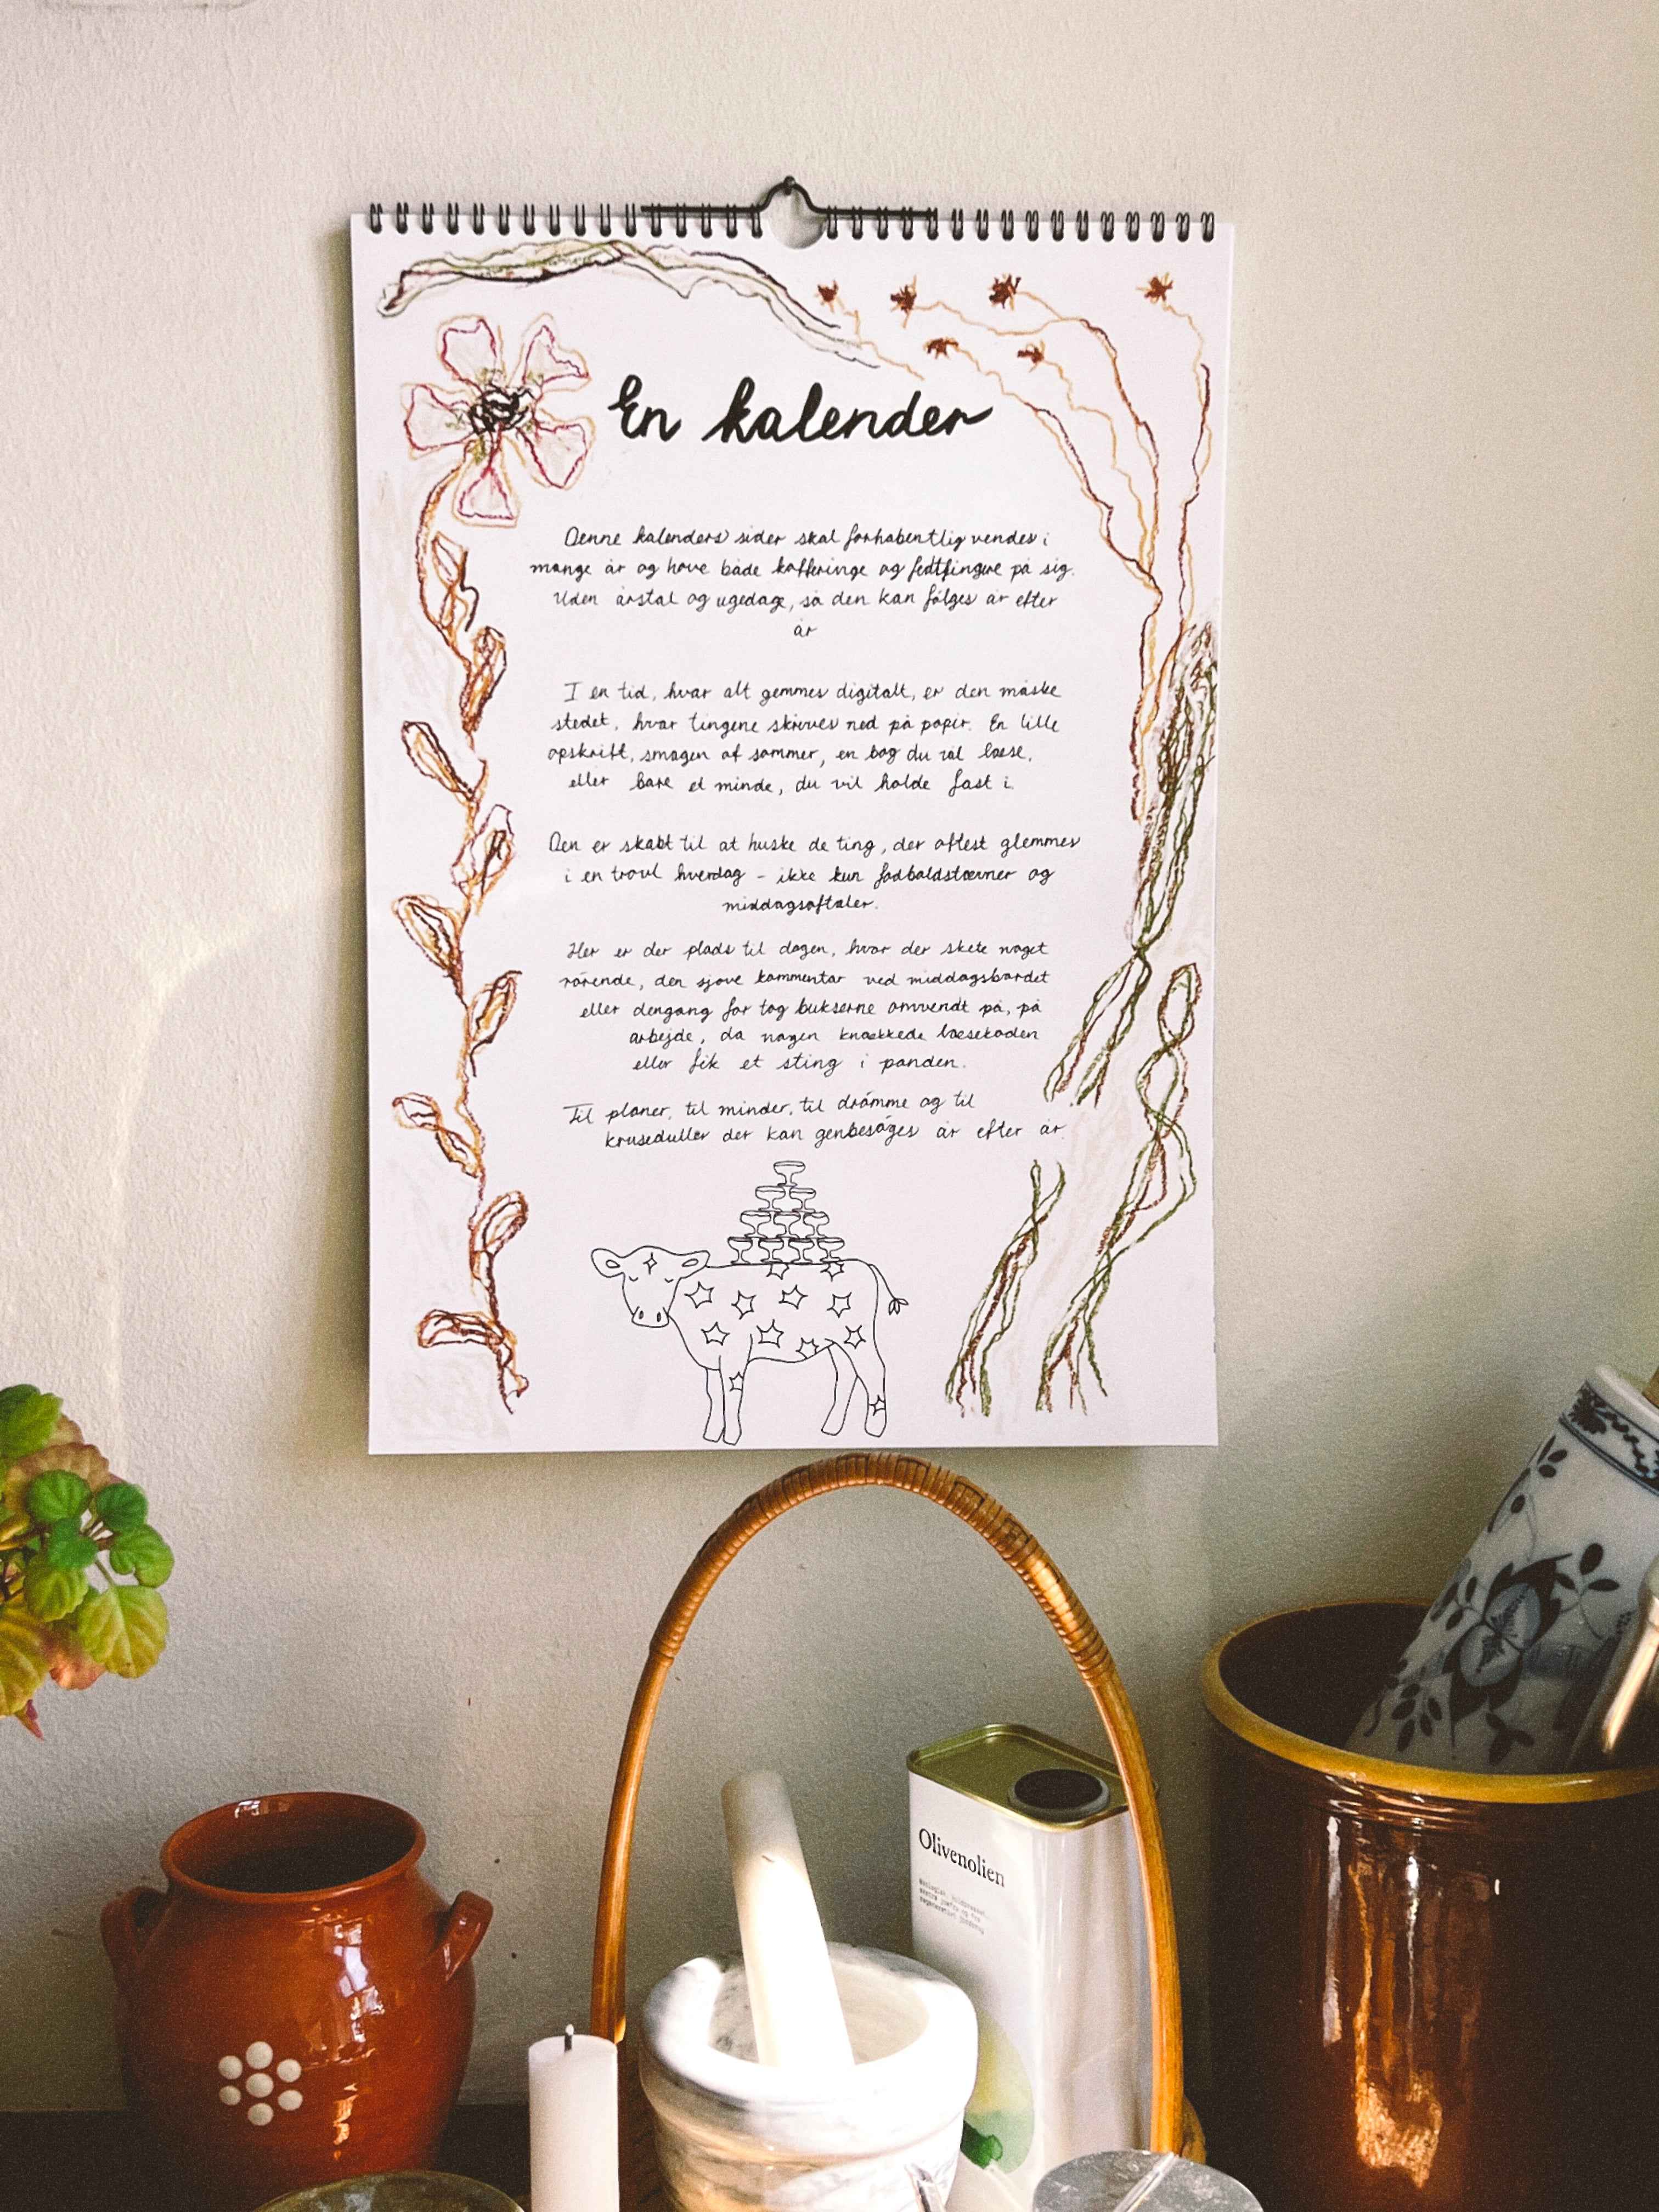 En kalender
Denne kalenders sider skal forhabentlig vendes i
mange år og have både kafferinge og fedtfingre på sig.
Uden årstal og ugedage, så den kan følges år efter
år
I en tid, hvor alt gemmes digitalt, er den måske
stedet, hvor tingene skrives ned på papir. En lille
opskrift, smagen af sommer, en bog du vil læse,
eller bare et minde, du vil holde fast i.
Den er skabt til at huske de ting, der oftest glemmes
i en travl hverdag - ikke kun fodboldstævner og
middagsaftaler.
Her er der plads til dagen, hvor der skete noget
rørende, den sjove kommentar ved middagsbordet
eller dengang far tog bukserne omvendt på, på
arbejde, da nogen knækkede læsekoden
eller fik et sting i panden.
Til planer, til minder, til drømme og til
kruseduller der kan genbesøges år efter år.
Olivenolien